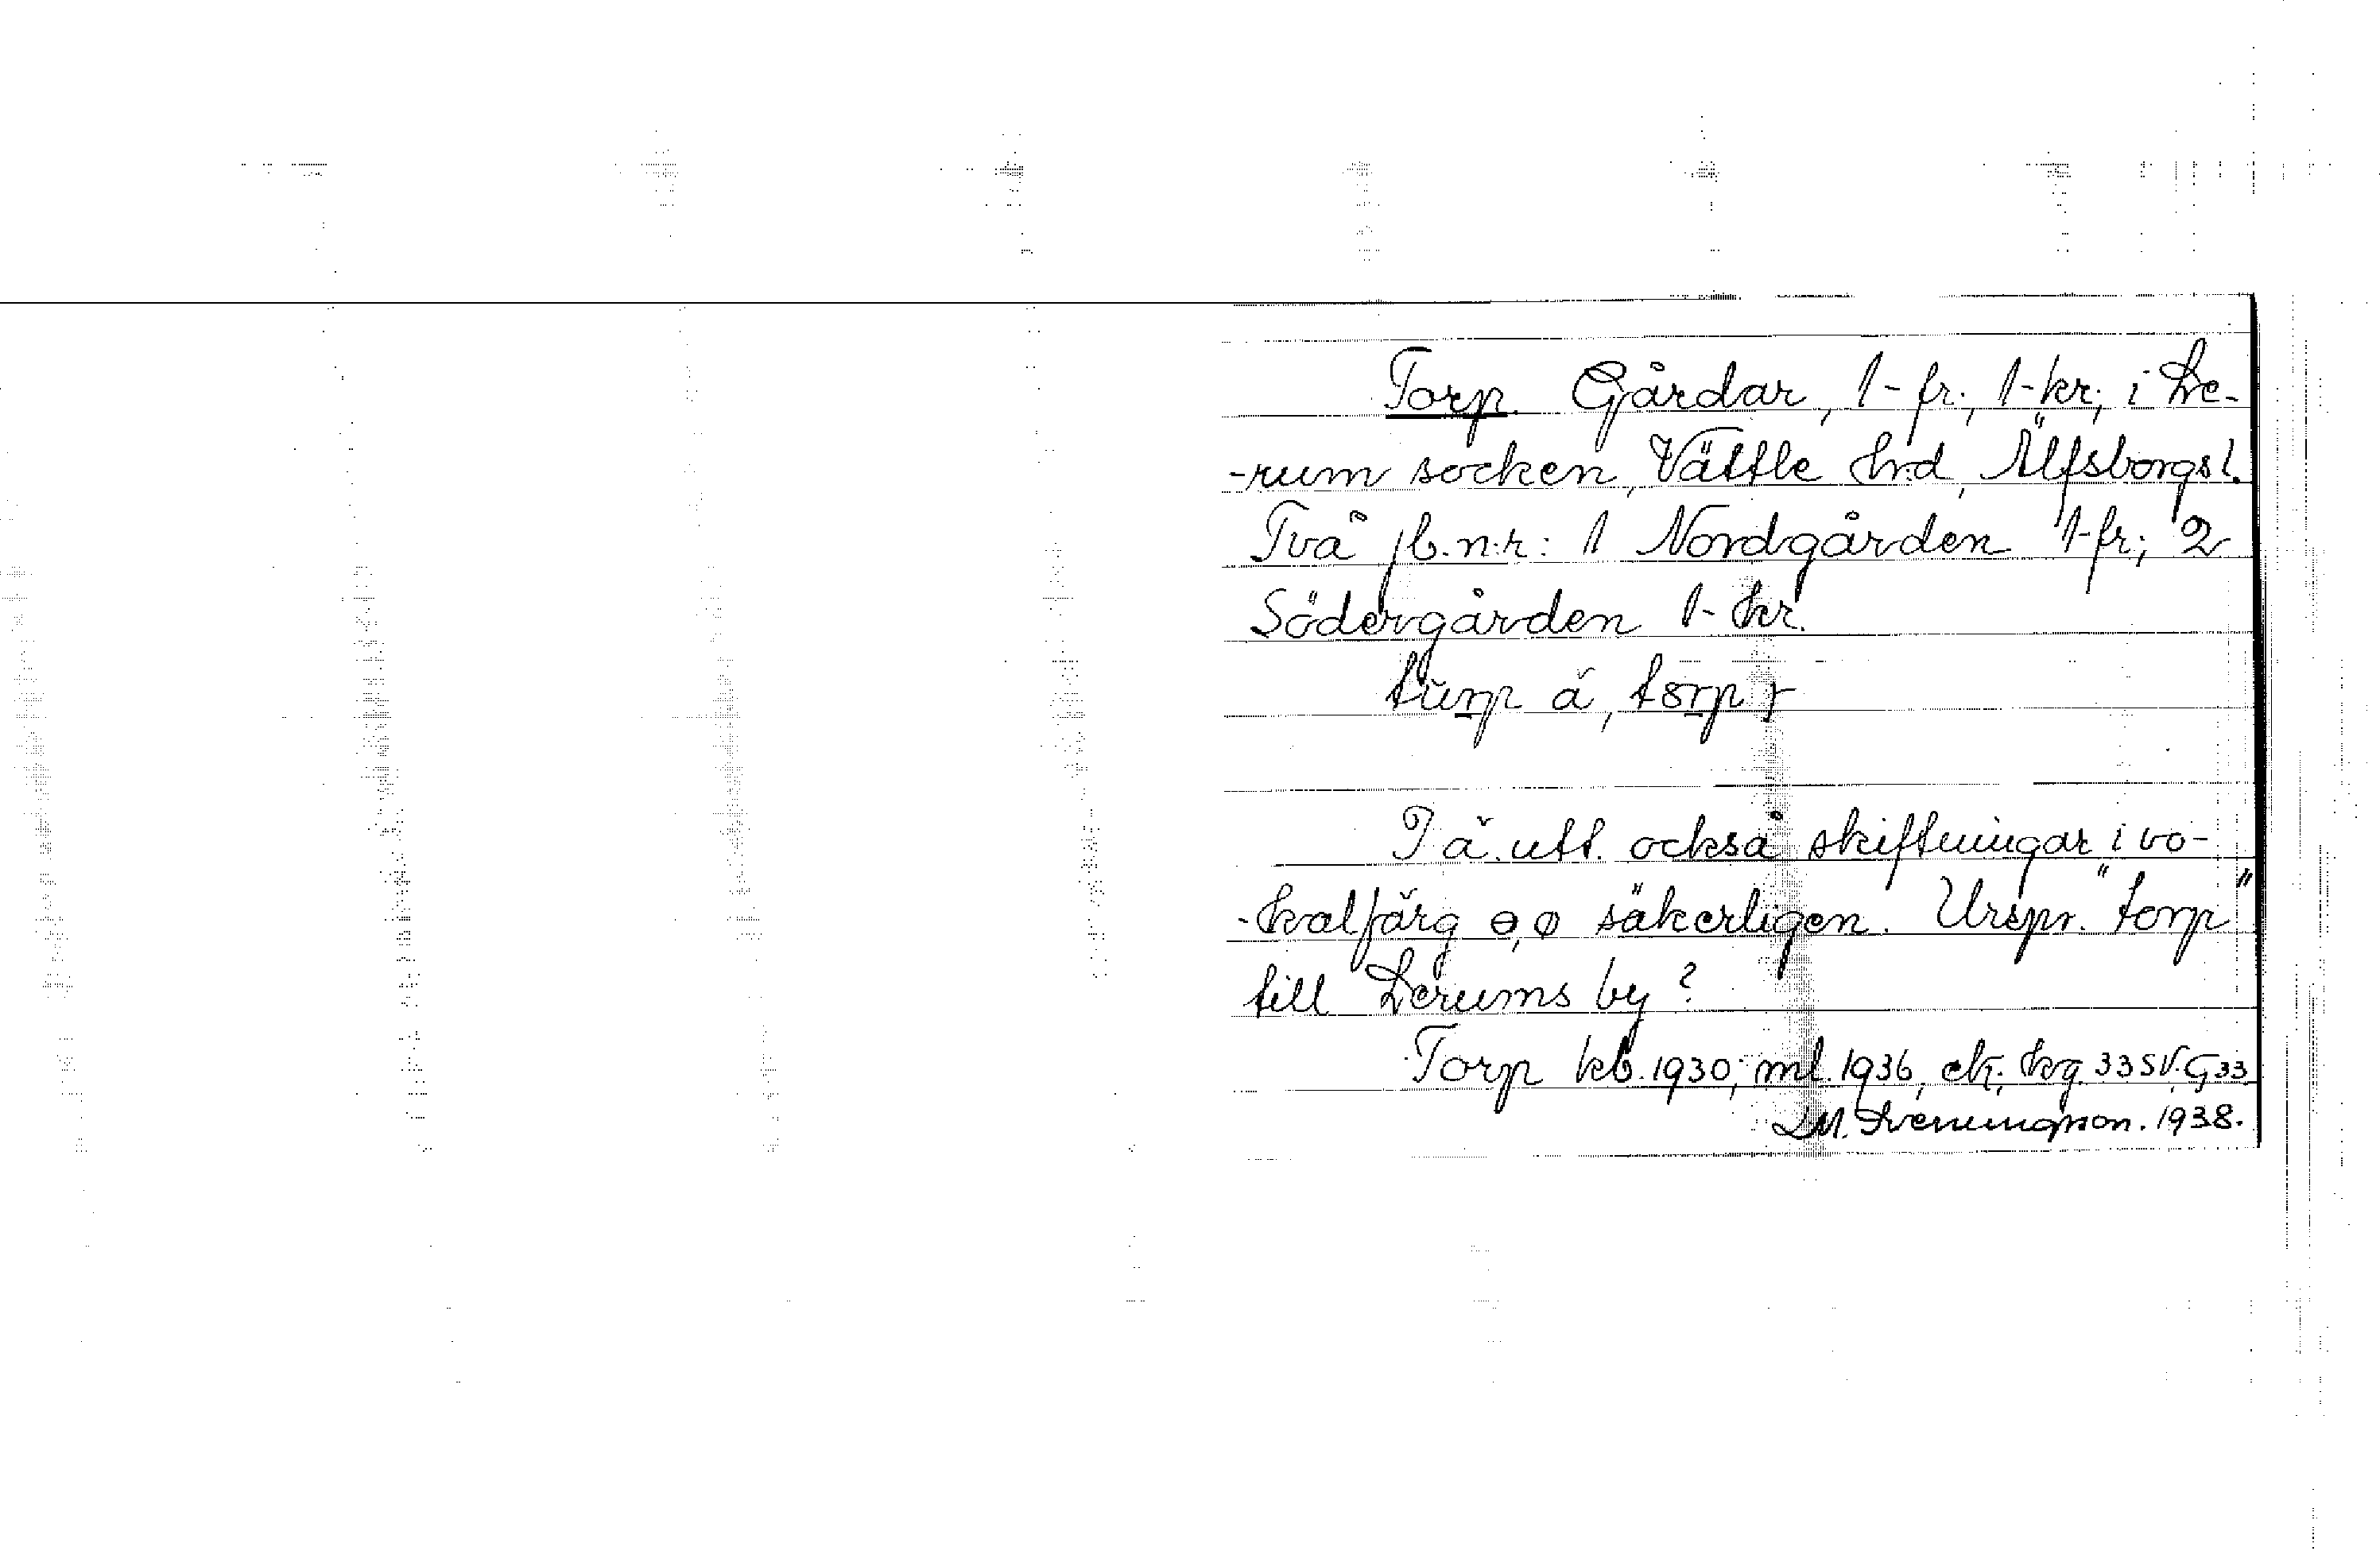 Torp. Gårdar, 1-fr., 1-kr., i Le-
-rum socken, Vättle hrd, Älfsborgs l.
Två jb.n:r: 1 Nordgården 1-fr.; 2
Södergården 1-kr.
I ä. utt. också skiftningar i vo-
-kalfärg ɵ, ø säkerligen. Urspr. "torp"
till Lerums by?
Torp kb. 1930; ml. 1936, ek. krg. 33 SV. G, 33
M. Sveningson. 1938.